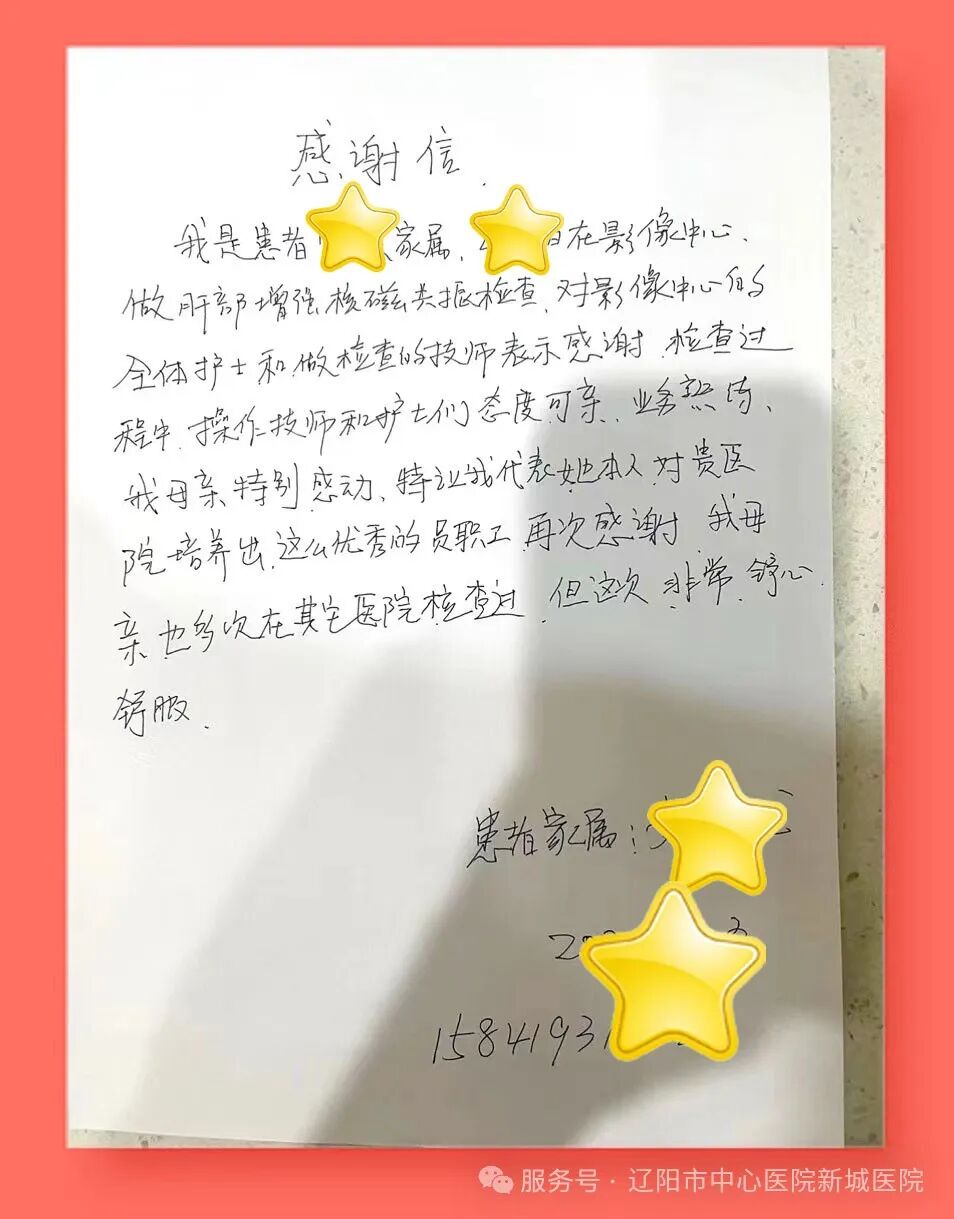 感谢信.
我是患者 家属, 日在影像中心.
做肝部增强核磁共振检查,对影像中心的
全体护士和做检查的技师表示感谢.检查过
程中,操作技师和护士们态度可亲、业务熟练、
我母亲特别感动、特让我代表她本人对贵医
院培养出这么优秀的员职工再次感谢.我母
亲也多次在其它医院核查过,但这次非常舒心.
舒服.
患者家属:
2
15841931
服务号·辽阳市中心医院新城医院